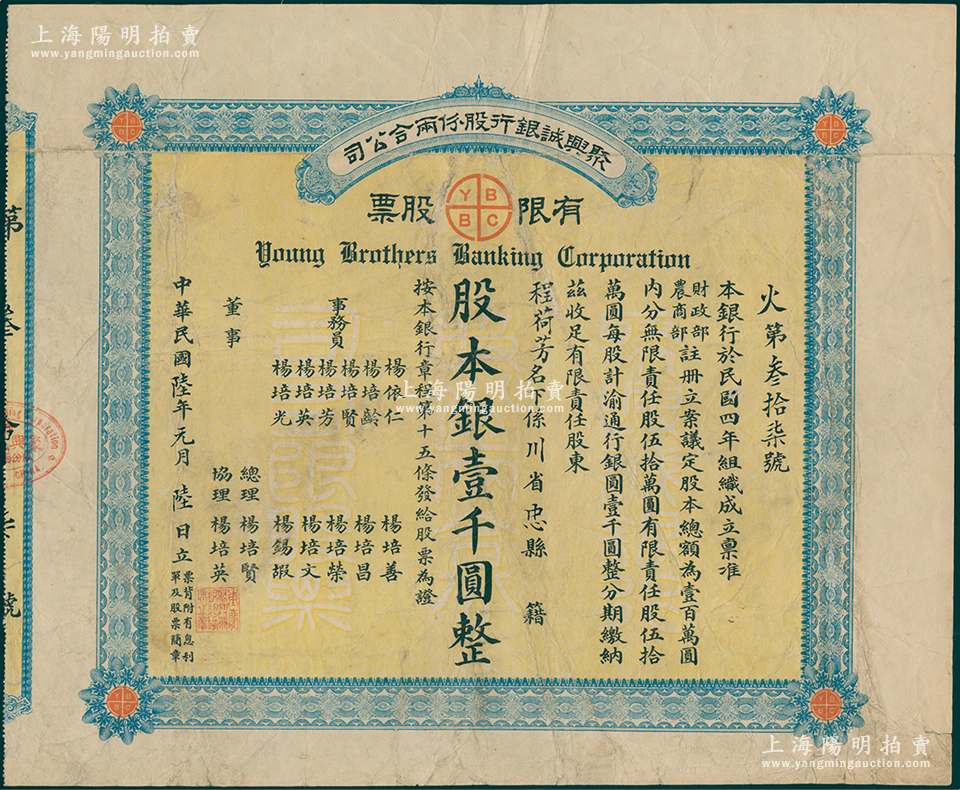 上海陽明拍賣
www.yangmingauction.com
聚興誠銀行股份兩合公司
有限股票
Y B
B C
Young Brothers Banking Corporation
火第叁拾柒號
本銀行於民國四年組織成立稟准
財政部
農商部
註册立案議定股本總額為壹百萬圓
內分無限責任股伍拾萬圓有限責任股伍拾
萬圓每股計渝通行銀圓壹千圓整分期繳納
茲收足有限責任股東
程荷芳名下係川省忠縣 籍
股本銀壹千圓整
按本銀行章程第十五條發給股票為證
事務員
楊依仁
楊培齡
楊培賢
楊培芳
楊培英
楊培光
楊培善
楊培昌
楊培榮
楊培文
楊錫嘏
董事
總理 楊培賢
協理 楊培英
中華民國陸年元月 陸日立
票背附有息利
單及股票簡章
第
號
上海陽明拍賣
www.yangmingauction.com
上海陽明拍賣
www.yangmingauction.com